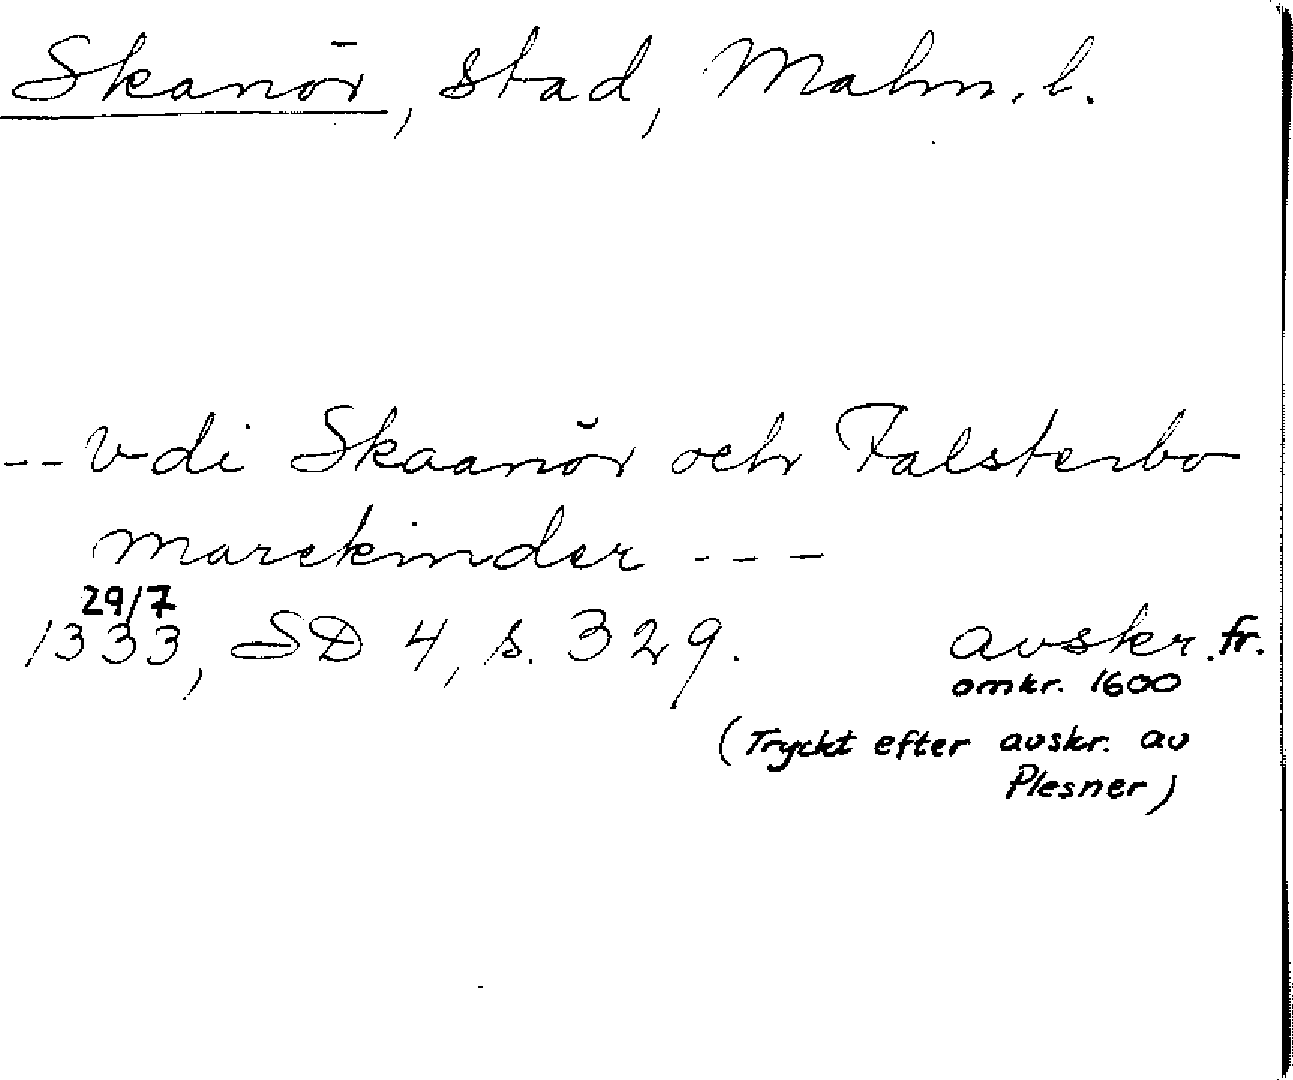 Skanör, stad, Malm. l.
-- vdi Skaanör och Falsterbo
marckinder ---
29/7
1333, SD 4, s. 329. avskr. fr.
omkr. 1600
(Tryckt efter avskr. av
Plesner)